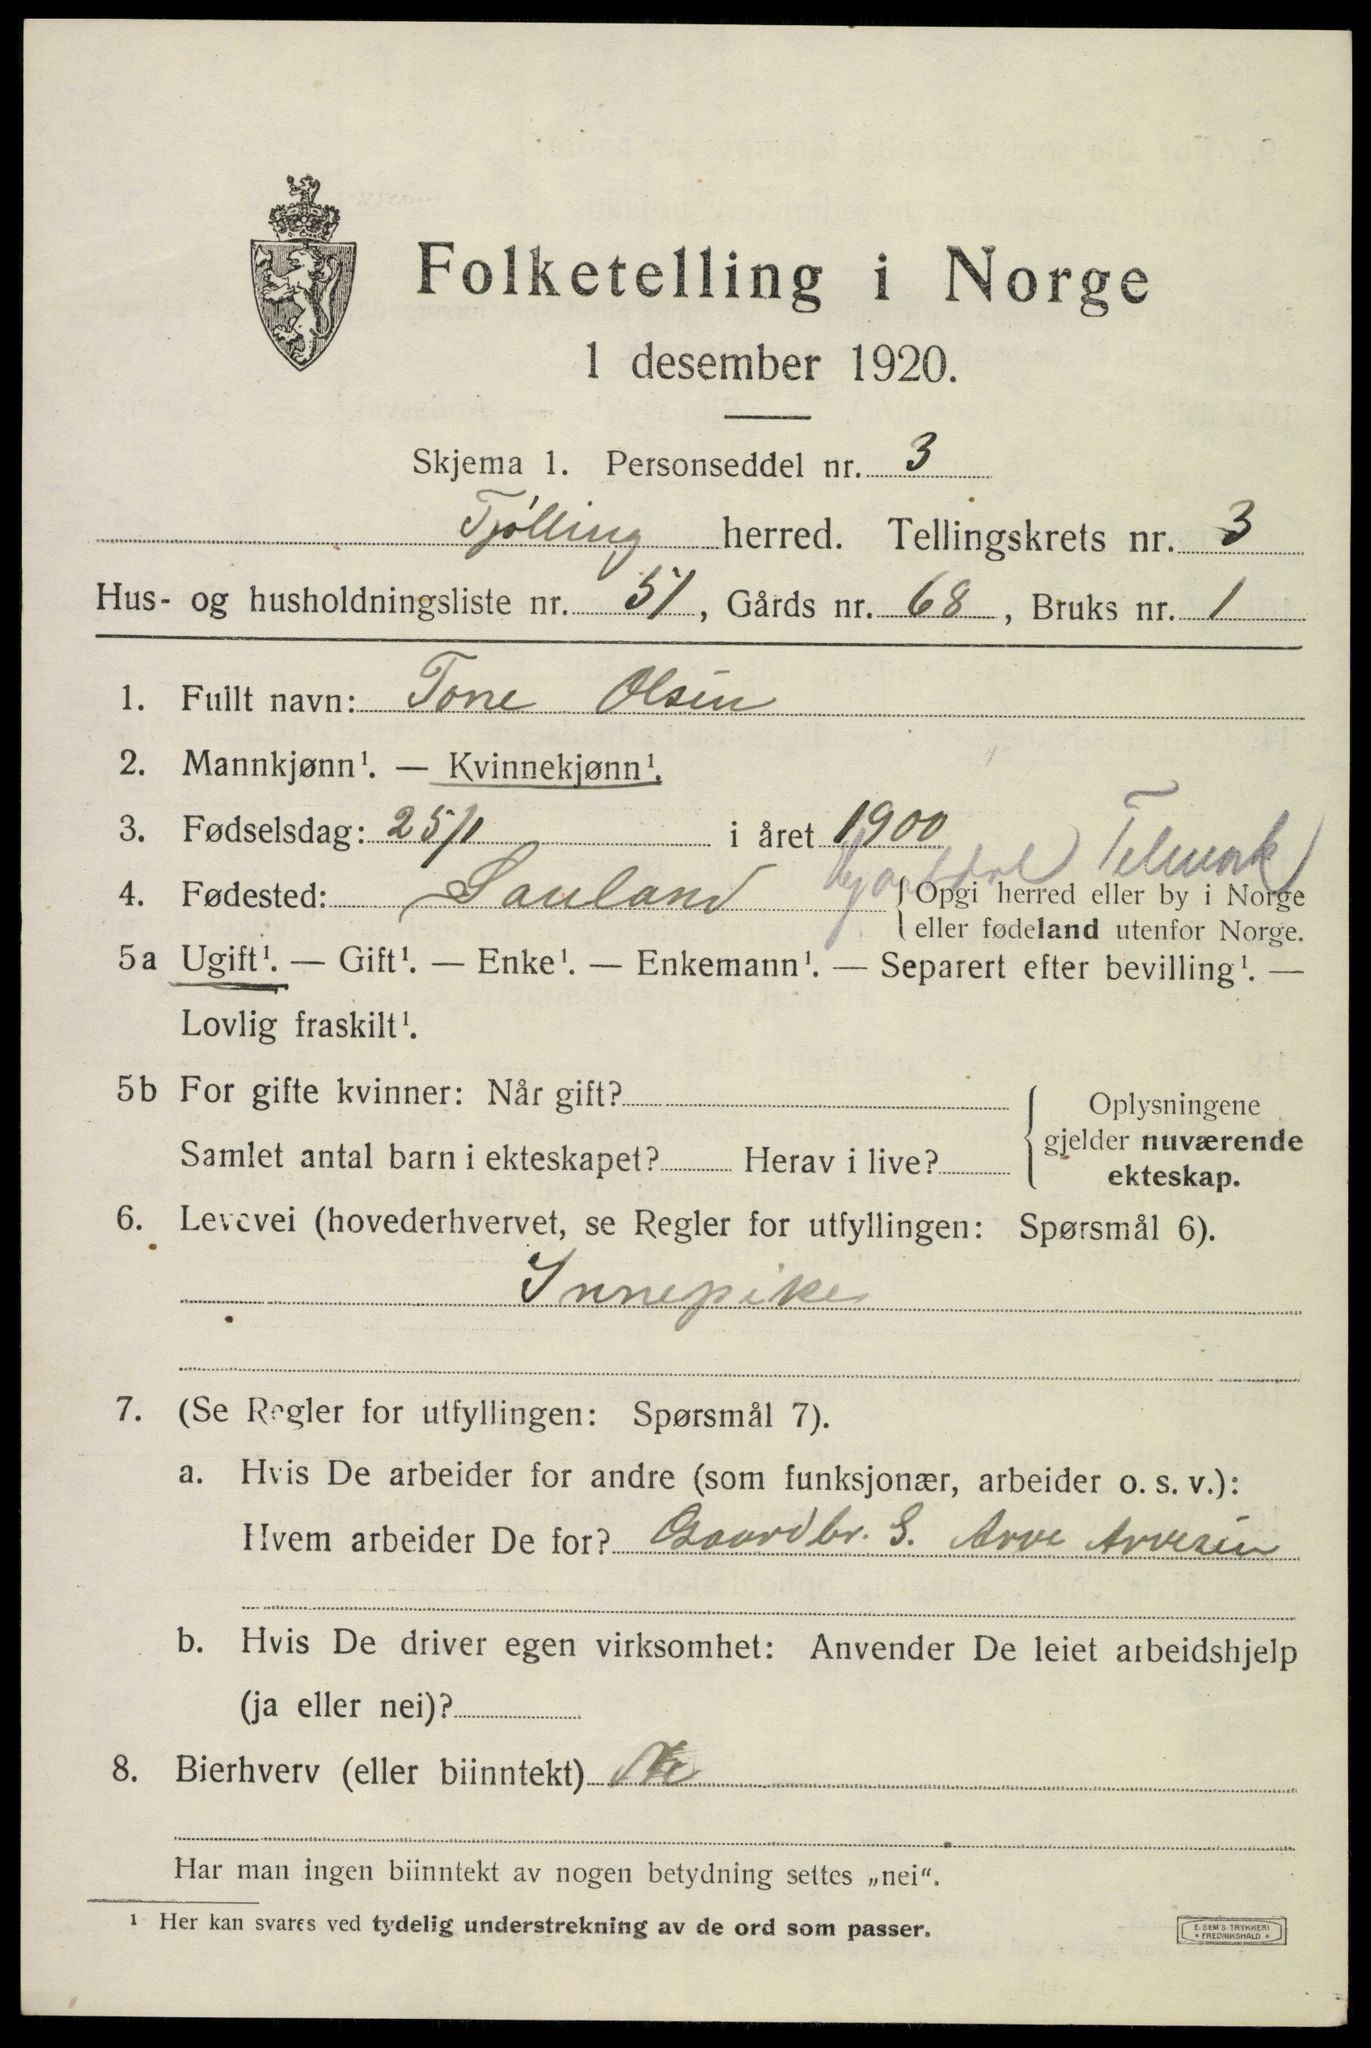 Folketelling i Norge
1 desember 1920.
Skjema 1. Personseddel nr. 3
Tjølling herred. Tellingskrets nr. 3
Hus- og husholdningsliste nr. 51, Gårds nr. 68, Bruks nr. 1
1. Fullt navn: Tone Olsen
2. Mannkjønn¹. — Kvinnekjønn¹.
3. Fødselsdag: 25/1 i året 1900
Hjartdal Telmork
4. Fødested: Sauland { Opgi herred eller by i Norge
eller fødeland utenfor Norge.
5a Ugift¹. — Gift¹. — Enke¹. — Enkemann¹. — Separert efter bevilling¹. —
Lovlig fraskilt¹.
5b For gifte kvinner: Når gift?
Samlet antal barn i ekteskapet? Herav i live?
Oplysningene
gjelder nuværende
ekteskap.
6. Levevei (hovederhvervet, se Regler for utfyllingen: Spørsmål 6).
Innepike
7. (Se Regler for utfyllingen: Spørsmål 7).
a. Hvis De arbeider for andre (som funksjonær, arbeider o. s. v.):
Hvem arbeider De for? Gaardbr. S. Arve Arvesen
b. Hvis De driver egen virksomhet: Anvender De leiet arbeidshjelp
(ja eller nei)?
8. Bierhverv (eller biinntekt)
Har man ingen biinntekt av nogen betydning settes „nei“.
¹ Her kan svares ved tydelig understrekning av de ord som passer.
E. SEM'S TRYKKERI
* FREDRIKSHALD *